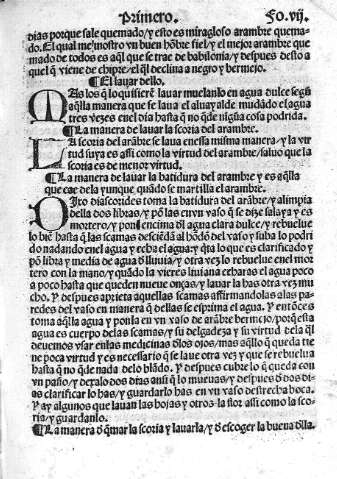 Primero. Fo. vij.
dias porque sale quemado/y esto es miragloso arambre quema-
do. El qual me mostro vn buen hõbre fiel/y el mejor arambre que
mado de todos es aq̃l que se trae de babilonia/y despues desto a
quel q̃ viene de chipre/el q̃l declina a negro y bermejo.
¶ El lauar dello.
MAs los q̃ lo quisierẽ lauar muelanlo en agua dulce segũ
aq̃lla manera que se laua el aluayalde mudãdo el agua
tres vezes en el dia hasta q̃ no q̃de nigũa cosa podrida.
¶ La manera de lauar la scoria del arambre.
LA scoria del arãbre se laua en essa misma manera/y la vir
tud suya es assi como la virtud del arambre/saluo que la
scoria es de menor virtud.
¶ La manera de lauar la batidura del arambre y es aq̃lla
que cae de la yunque quãdo se martilla el arambre.
DIxo diascorides toma la batidura del arãbre/y alimpia
della dos libras/y põ las en vn vaso q̃ se dize salaya y es
mortero/y pon encima dl̃ agua clara dulce/y rebuelue
lo biẽ hasta q̃ las scamas desciẽdã al hõdõ del vaso/y suba lo podri
do nadando en el agua/y echa el agua/y q̃ta lo que es clarificado y
põ libra y media de agua d̃ lluuia/y otra vez lo rebuelue en el mor
tero con la mano/y quãdo la vieres liuiana echaras el agua poco
a poco hasta que queden nueue onças/y lauar la has otra vez mu
cho. Y despues aprieta aquellas scamas affirmandolas a las pa-
redes del vaso en manera q̃ dellas se exprima el agua. Y entõces
toma aq̃lla agua y ponla en vn vaso de arãbre bermejo/porq̃ esta
agua es cuerpo de las scamas/y su delgadeza y su virtud de la q̃l
deuemos vsar en las medicinas d̃ los ojos/mas aq̃llo q̃ queda tie
ne poca virtud/y es necesario q̃ se laue otra vez y que se rebuelua
hasta q̃ no q̃de nada de lo blãdo. Y despues cubre lo q̃ queda con
vn paño/y dexalo dos dias ansi q̃ lo mueuas/y despues d̃ dos di-
as clarificar lo has/y guardarlo has en vn vaso destrecha boca.
Y ay algunos que lauan las hojas y otros la flor assi como la sco-
ria/y guardanlo.
¶ La manera d̃ q̃mar la scoria y lauarla/y d̃ escoger la buena dlla.